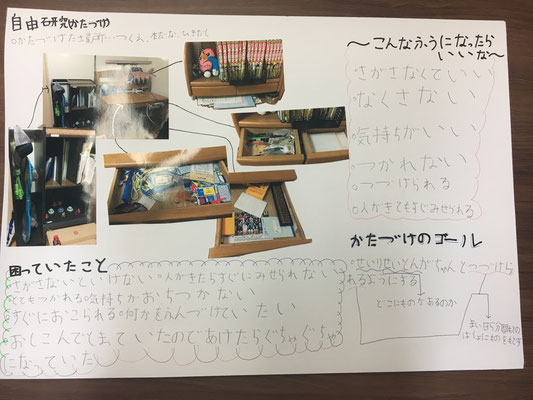 自由研究かたづけ
○かたづけた場所…つくえ、本だな、ひきだし
～こんなふうになったら
いいな～
○さがさなくていい
○なくさない
○気持ちがいい
○つかれない
○つづけられる
○人がきてもすぐみせられる
かたづけのゴール
○せいりせいとんがちゃんとつづけら
れるようにする
どこにものがあるのか
困っていたこと
さがさないといけない○人がきたらすぐにみせられない
とてもつかれる○気持ちがおちつかない
すぐにおこられる○何かをふんづけていたい
おしこんでしまっていたのであけたらぐちゃぐちゃ
になっていた